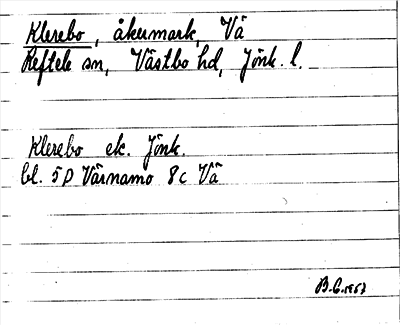 Klerebo, åkermark, Vä
Reftele sn, Västbo hd, Jönk. l.
Klerebo ek. Jönk.
bl. 5D Värnamo 8c Vä
B.G. 1967